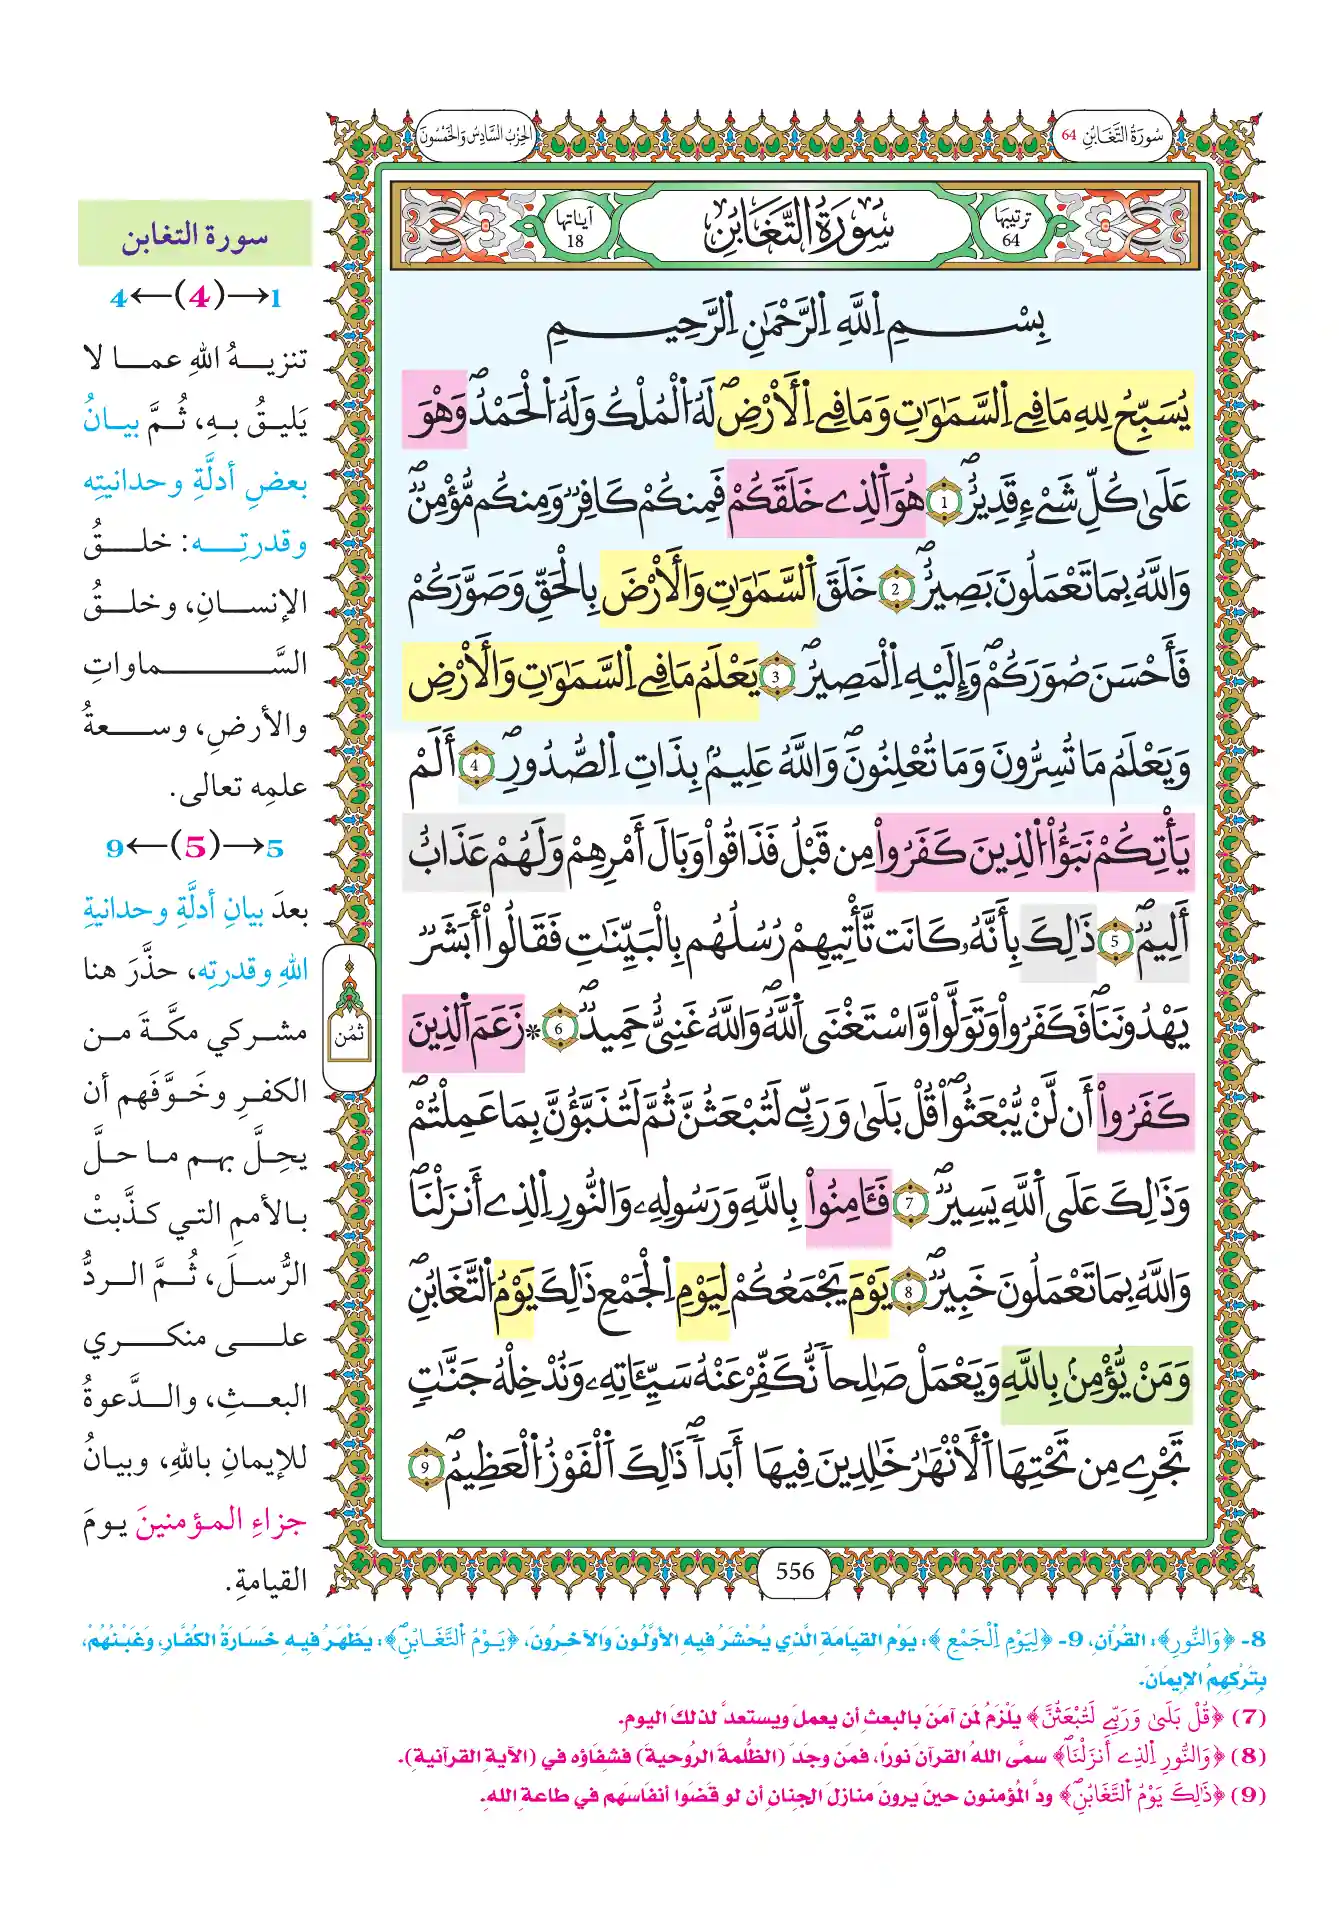 سُورَةُ التَّغَابُنِ 64
الحِزْبُ السَّادِسُ وَالخَمْسُونَ
ترتيبها 64
سُورَةُ التَّغَابُنِ
آياتها 18
بِسْمِ اِللَّهِ اِلرَّحْمَٰنِ اِلرَّحِيمِ
يُسَبِّحُ لِلهِ مَا فِے اِلسَّمَٰوَٰتِ وَمَا فِے اِلْأَرْضِۖ لَهُ اُلْمُلْكُ وَلَهُ اُلْحَمْدُۖ وَهْوَ
عَلَىٰ كُلِّ شَےْءٖ قَدِيرٌۖ 1 هُوَ اَلذِے خَلَقَكُمْ فَمِنكُمْ كَافِرٞ وَمِنكُم مُّؤْمِنٞۖ
وَاللَّهُ بِمَا تَعْمَلُونَ بَصِيرٌۖ 2 خَلَقَ اَلسَّمَٰوَٰتِ وَالْأَرْضَ بِالْحَقِّ وَصَوَّرَكُمْ
فَأَحْسَنَ صُوَرَكُمْۖ وَإِلَيْهِ اِلْمَصِيرُۖ 3 يَعْلَمُ مَا فِے اِلسَّمَٰوَٰتِ وَالْأَرْضِ
وَيَعْلَمُ مَا تُسِرُّونَ وَمَا تُعْلِنُونَۖ وَاللَّهُ عَلِيمُۢ بِذَاتِ اِلصُّدُورِۖ 4 أَلَمْ
يَأْتِكُمْ نَبَؤُاْ اُلذِينَ كَفَرُواْ مِن قَبْلُ فَذَاقُواْ وَبَالَ أَمْرِهِمْ وَلَهُمْ عَذَابٌ
أَلِيمٞۖ 5 ذَٰلِكَ بِأَنَّهُۥ كَانَت تَّأْتِيهِمْ رُسُلُهُم بِالْبَيِّنَٰتِ فَقَالُواْ أَبَشَرٞ
يَهْدُونَنَاۖ فَكَفَرُواْ وَتَوَلَّواْ وَّاسْتَغْنَى اَللَّهُۖ وَاللَّهُ غَنِيٌّ حَمِيدٞۖ 6 * زَعَمَ اَلذِينَ
كَفَرُواْ أَن لَّنْ يُّبْعَثُواْۖ قُلْ بَلَىٰ وَرَبِّے لَتُبْعَثُنَّ ثُمَّ لَتُنَبَّؤُنَّ بِمَا عَمِلْتُمْۖ
وَذَٰلِكَ عَلَى اَللَّهِ يَسِيرٞۖ 7 فَـَٔامِنُواْ بِاللَّهِ وَرَسُولِهِۦ وَالنُّورِ اِلذِے أَنزَلْنَاۖ
وَاللَّهُ بِمَا تَعْمَلُونَ خَبِيرٞۖ 8 يَوْمَ يَجْمَعُكُمْ لِيَوْمِ اِلْجَمْعِ ذَٰلِكَ يَوْمُ اُلتَّغَابُنِۖ
وَمَنْ يُّؤْمِنۢ بِاللَّهِ وَيَعْمَلْ صَٰلِحاٗ نُّكَفِّرْ عَنْهُ سَيِّـَٔاتِهِۦ وَنُدْخِلْهُ جَنَّٰتٖ
تَجْرِے مِن تَحْتِهَا اَلْأَنْهَٰرُ خَٰلِدِينَ فِيهَا أَبَداٗۖ ذَٰلِكَ اَلْفَوْزُ اُلْعَظِيمُۖ 9
ثُمُن
556
سورة التغابن
1→(4)←4
تنزيهُ اللهِ عما لا
يَليقُ بهِ، ثُمَّ بيانُ
بعضِ أدلَّةِ وحدانيتِه
وقدرتِه: خلقُ
الإنسانِ، وخلقُ
السَّماواتِ
والأرضِ، وسعةُ
علمِه تعالى.
5→(5)←9
بعدَ بيانِ أدلَّةِ وحدانيةِ
اللهِ وقدرتِه، حذَّرَ هنا
مشركي مكَّةَ من
الكفرِ وخَوَّفَهم أن
يحِلَّ بهم ما حلَّ
بالأممِ التي كذَّبتْ
الرُّسلَ، ثُمَّ الردُّ
على منكري
البعثِ، والدَّعوةُ
للإيمانِ باللهِ، وبيانُ
جزاءِ المؤمنينَ يومَ
القيامةِ.
8- ﴿وَالنُّورِ﴾: القُرْآنِ، 9- ﴿لِيَوْمِ اِلْجَمْعِ﴾: يَوْمِ القِيَامَةِ الَّذِي يُحْشَرُ فِيهِ الأَوَّلُونَ وَالآخِرُونَ، ﴿يَوْمُ اُلتَّغَابُنِۖ﴾: يَظْهَرُ فِيهِ خَسَارَةُ الكُفَّارِ، وَغَبْنُهُمْ،
بِتَرْكِهِمُ الإِيمَانَ.
(7) ﴿قُلْ بَلَىٰ وَرَبِّے لَتُبْعَثُنَّ﴾ يلْزَمُ لمن آمَنَ بالبعثِ أن يعملَ ويستعدَّ لذلكَ اليومِ.
(8) ﴿وَالنُّورِ اِلذِے أَنزَلْنَاۖ﴾ سمَّى اللهُ القرآنَ نورًا، فمَن وجَدَ (الظُّلمةَ الرُوحيةَ) فشِفَاؤه في (الآيةِ القرآنيةِ).
(9) ﴿ذَٰلِكَ يَوْمُ اُلتَّغَابُنِۖ﴾ ودَّ المُؤمنون حينَ يرونَ منازلَ الجِنانِ أن لو قَضَوا أنفَاسَهم في طاعةِ اللهِ.